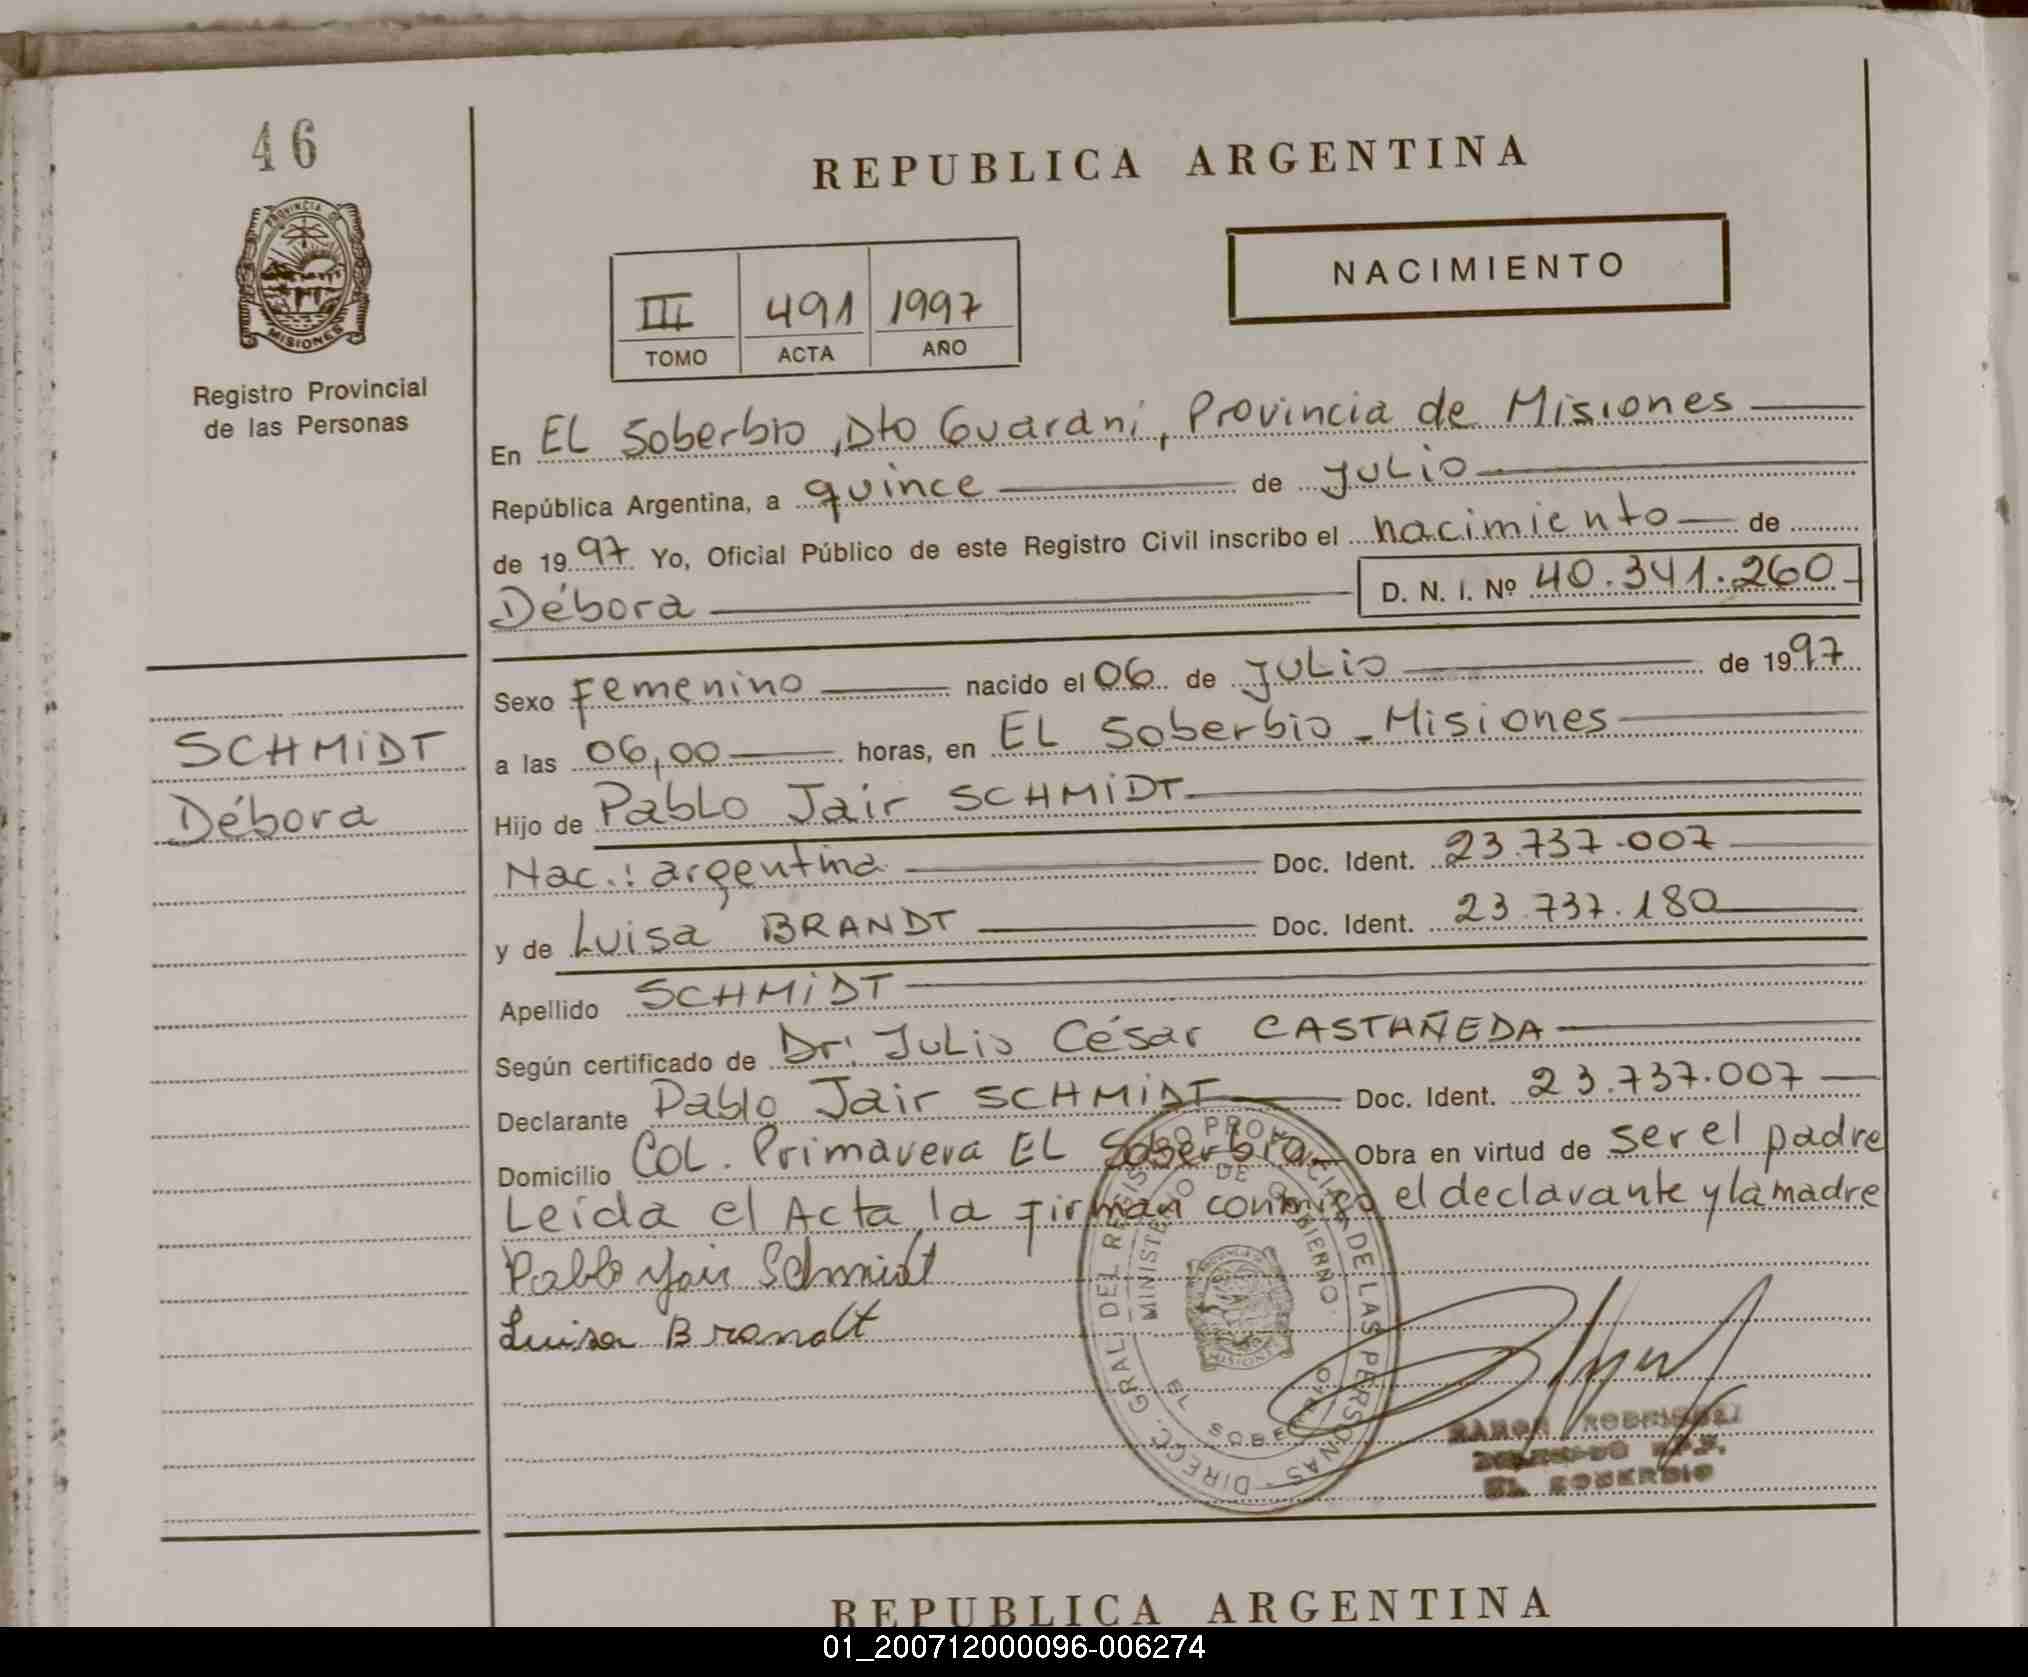 46
PROVINCIA DE
MISIONES
Registro Provincial
de las Personas
REPUBLICA ARGENTINA
NACIMIENTO
III 491 1997
TOMO ACTA AÑO
En EL Soberbio, Dto Guaraní, Provincia de Misiones
República Argentina, a quince de Julio
de 1997 Yo, Oficial Público de este Registro Civil inscribo el nacimiento de
Débora D. N. I. Nº 40.341.260
Sexo Femenino nacido el 06 de Julio de 1997
a las 06,00 horas, en EL Soberbio - Misiones
SCHMIDT
Débora
Hijo de Pablo Jair SCHMIDT
Nac.: argentina Doc. Ident. 23.737.007
y de Luisa BRANDT Doc. Ident. 23.737.180
Apellido SCHMIDT
Según certificado de Dr. Julio César CASTAÑEDA
Declarante Pablo Jair SCHMIDT Doc. Ident. 23.737.007
Domicilio COL. Primavera EL Soberbio Obra en virtud de ser el padre
Leída el Acta, la firman conmigo el declarante y la madre
Pablo Yair Schmidt
Luisa Brandt
DIRECC. GRAL. DEL REGISTRO PROVINCIAL DE LAS PERSONAS
MINISTERIO DE GOBIERNO
MISIONES
EL SOBERBIO
RAMON RODRIGUEZ
EL SOBERBIO
REPUBLICA ARGENTINA
01_200712000096-006274